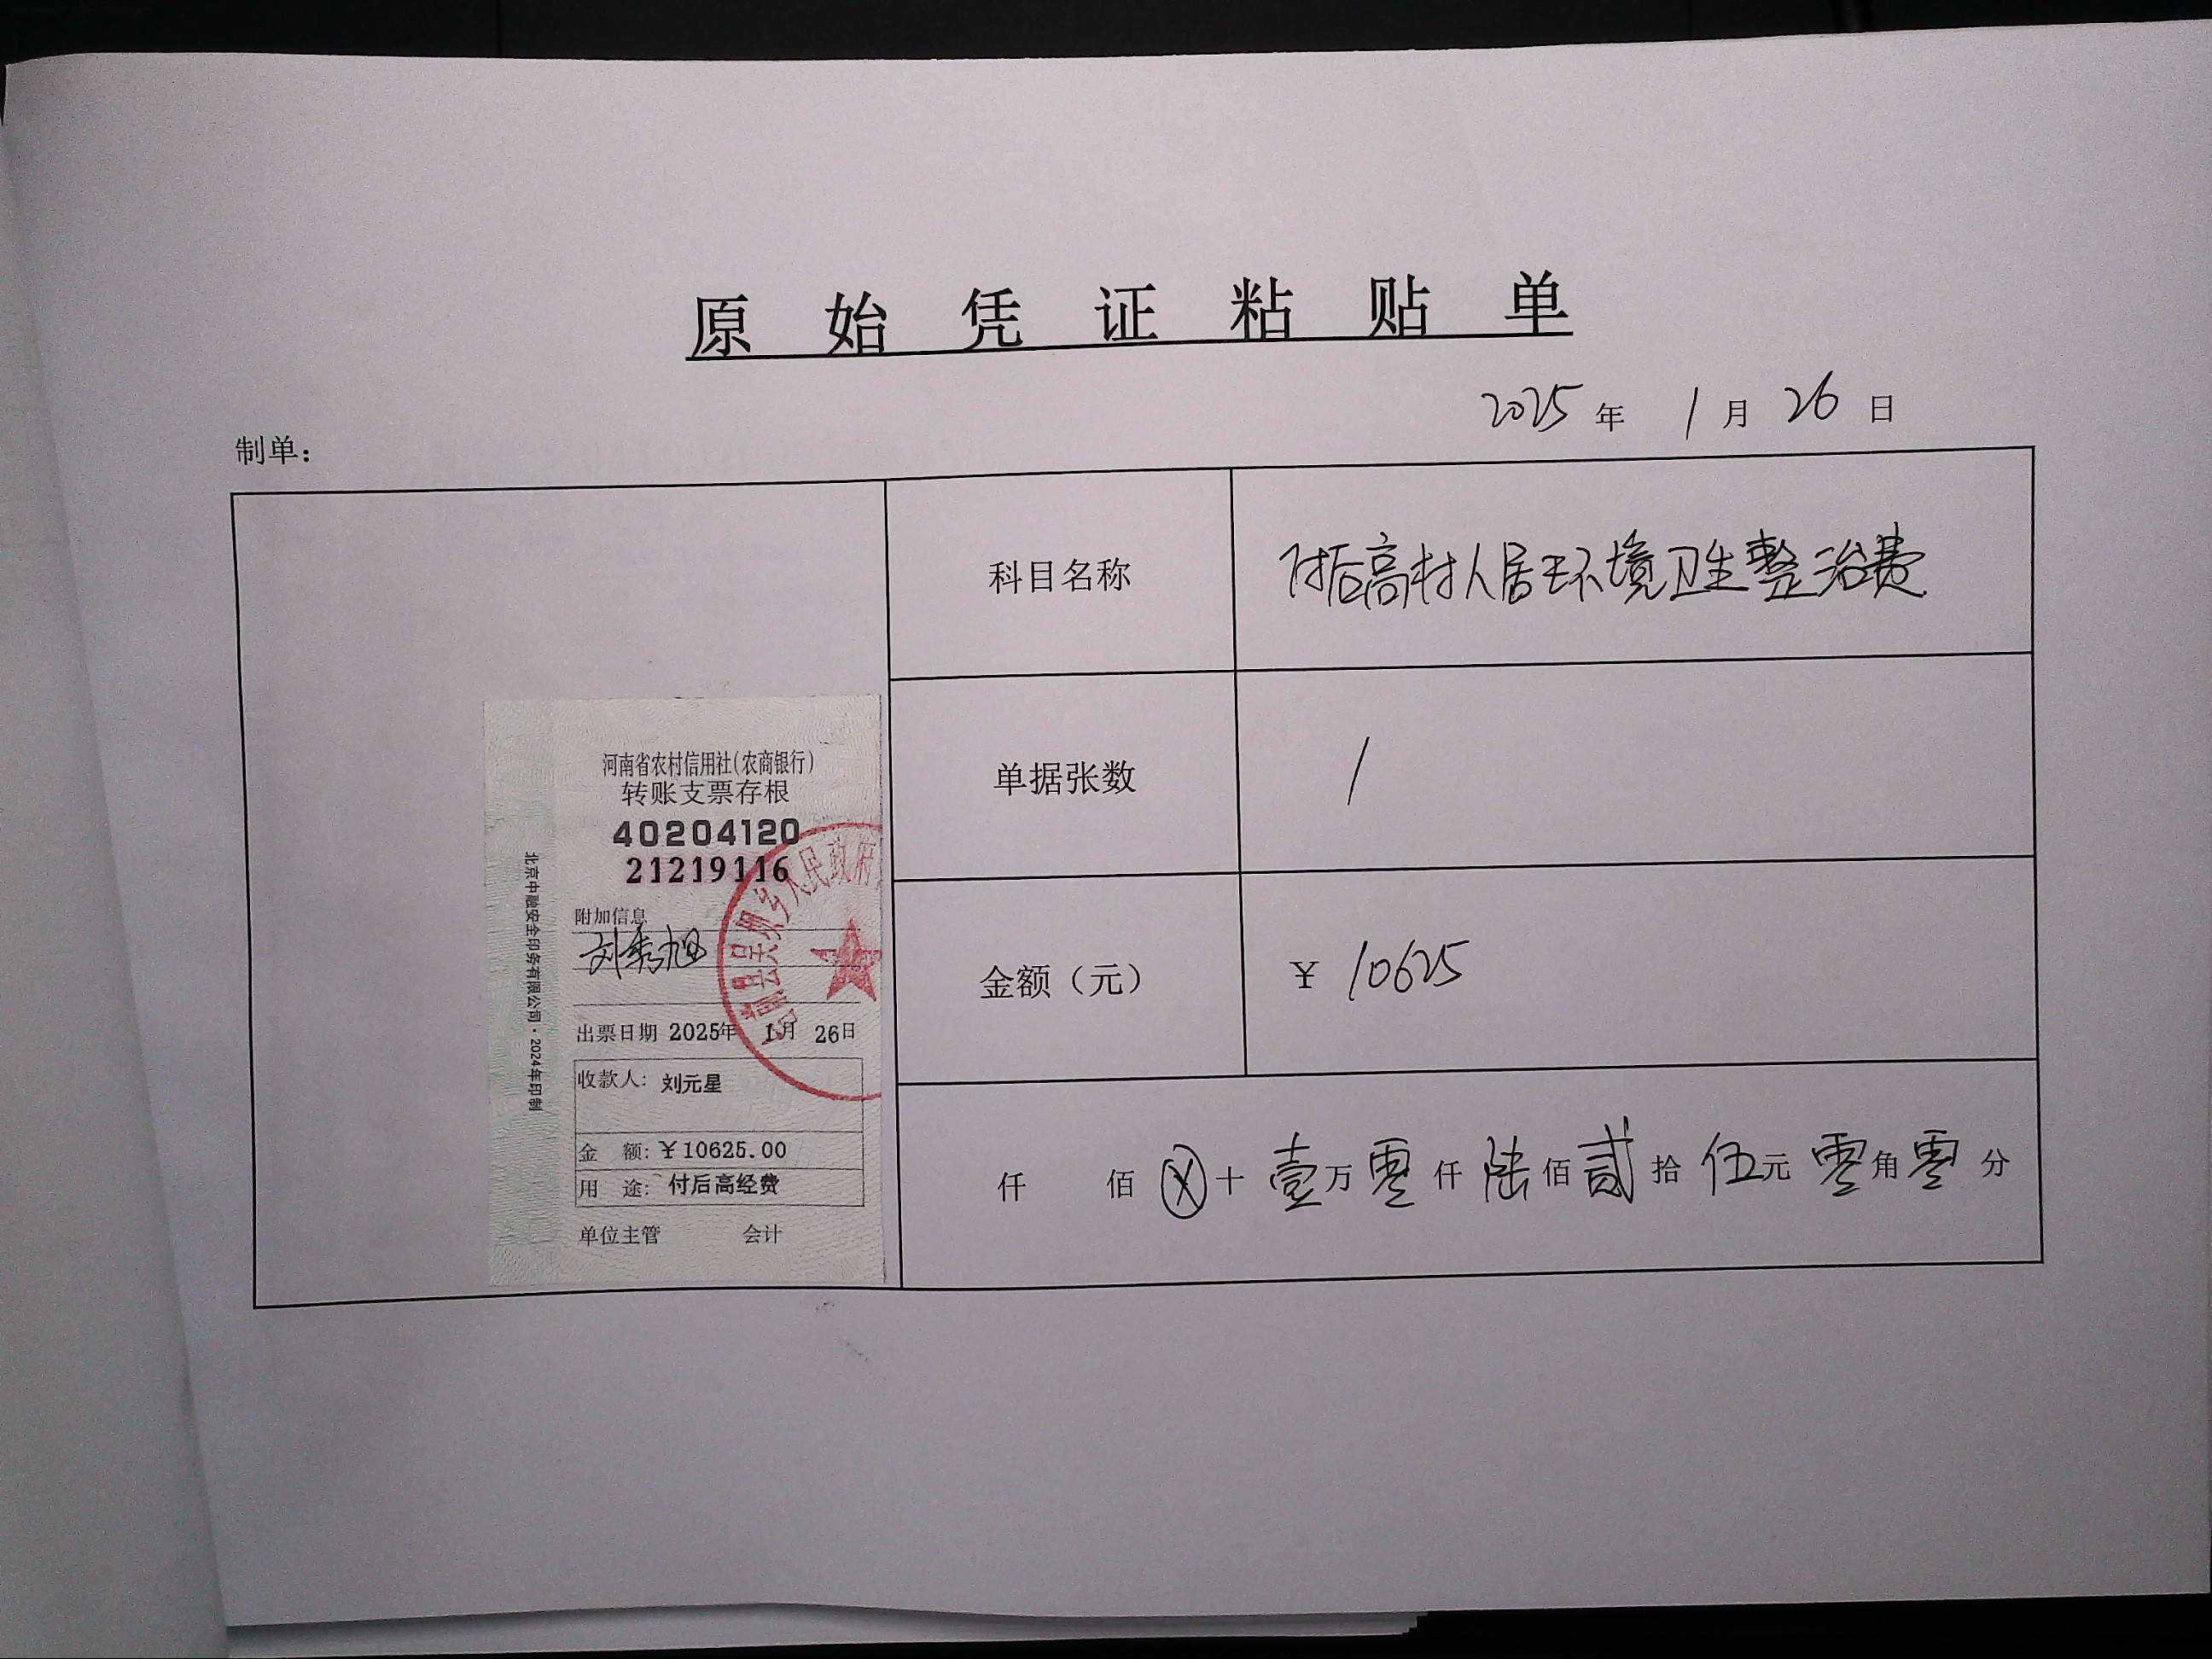 原始凭证粘贴单
2025年 1月 26日
制单：
科目名称
付后高村人居环境卫生整治费
单据张数
1
金额（元）
¥ 10625
仟 佰 ⊗ 十 壹万 零仟 陆佰 贰拾 伍元 零角 零分
河南省农村信用社(农商银行)
转账支票存根
40204120
21219116
附加信息
出票日期 2025年 1月 26日
收款人: 刘元星
金 额: ¥10625.00
用 途: 付后高经费
单位主管 会计
北京中融安全印务有限公司·2024年印制
县吴坝乡人民政府